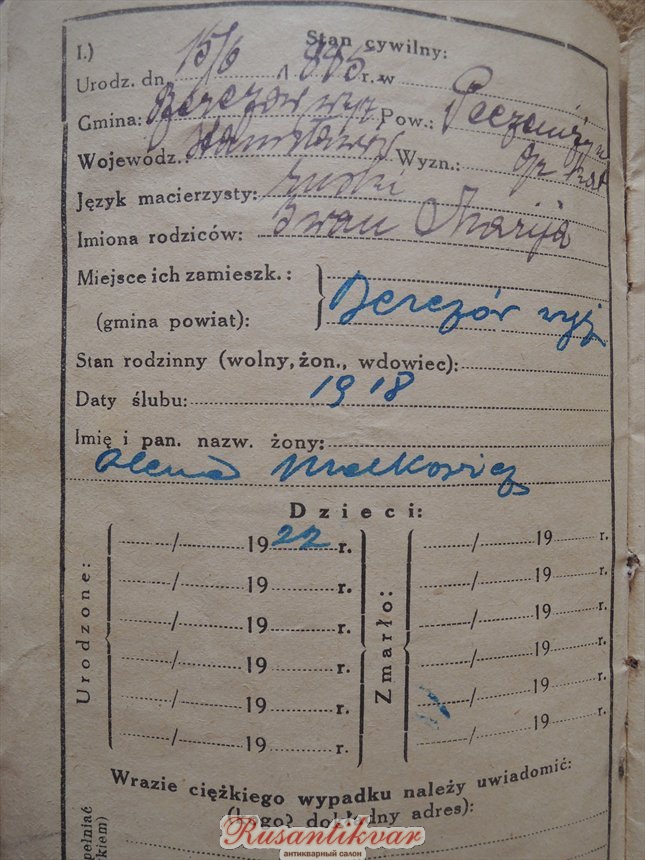 I.) Stan cywilny:
Urodz. dn. 15/6 1895 r. w
Gmina: Berezów wyż. Pow.: Peczeniżyn
Wojewódz.: Stanisławów Wyzn.: gr kat
Język macierzysty: ruski
Imiona rodziców: Iwan Marija
Miejsce ich zamieszk.:
(gmina powiat): Berezów wyż.
Stan rodzinny (wolny, żon., wdowiec):
Daty ślubu: 1918
Imię i pan. nazw. żony:
Olena Malkowicz
Dzieci:
Urodzone:
/ 19 22 r.
/ 19 r.
/ 19 r.
/ 19 r.
/ 19 r.
/ 19 r.
Zmarło:
/ 19 r.
/ 19 r.
/ 19 r.
/ 19 r.
/ 19 r.
/ 19 r.
Wrazie ciężkiego wypadku należy uwiadomić:
(kogo? dokładny adres):
Rusantikvar
антикварный салон